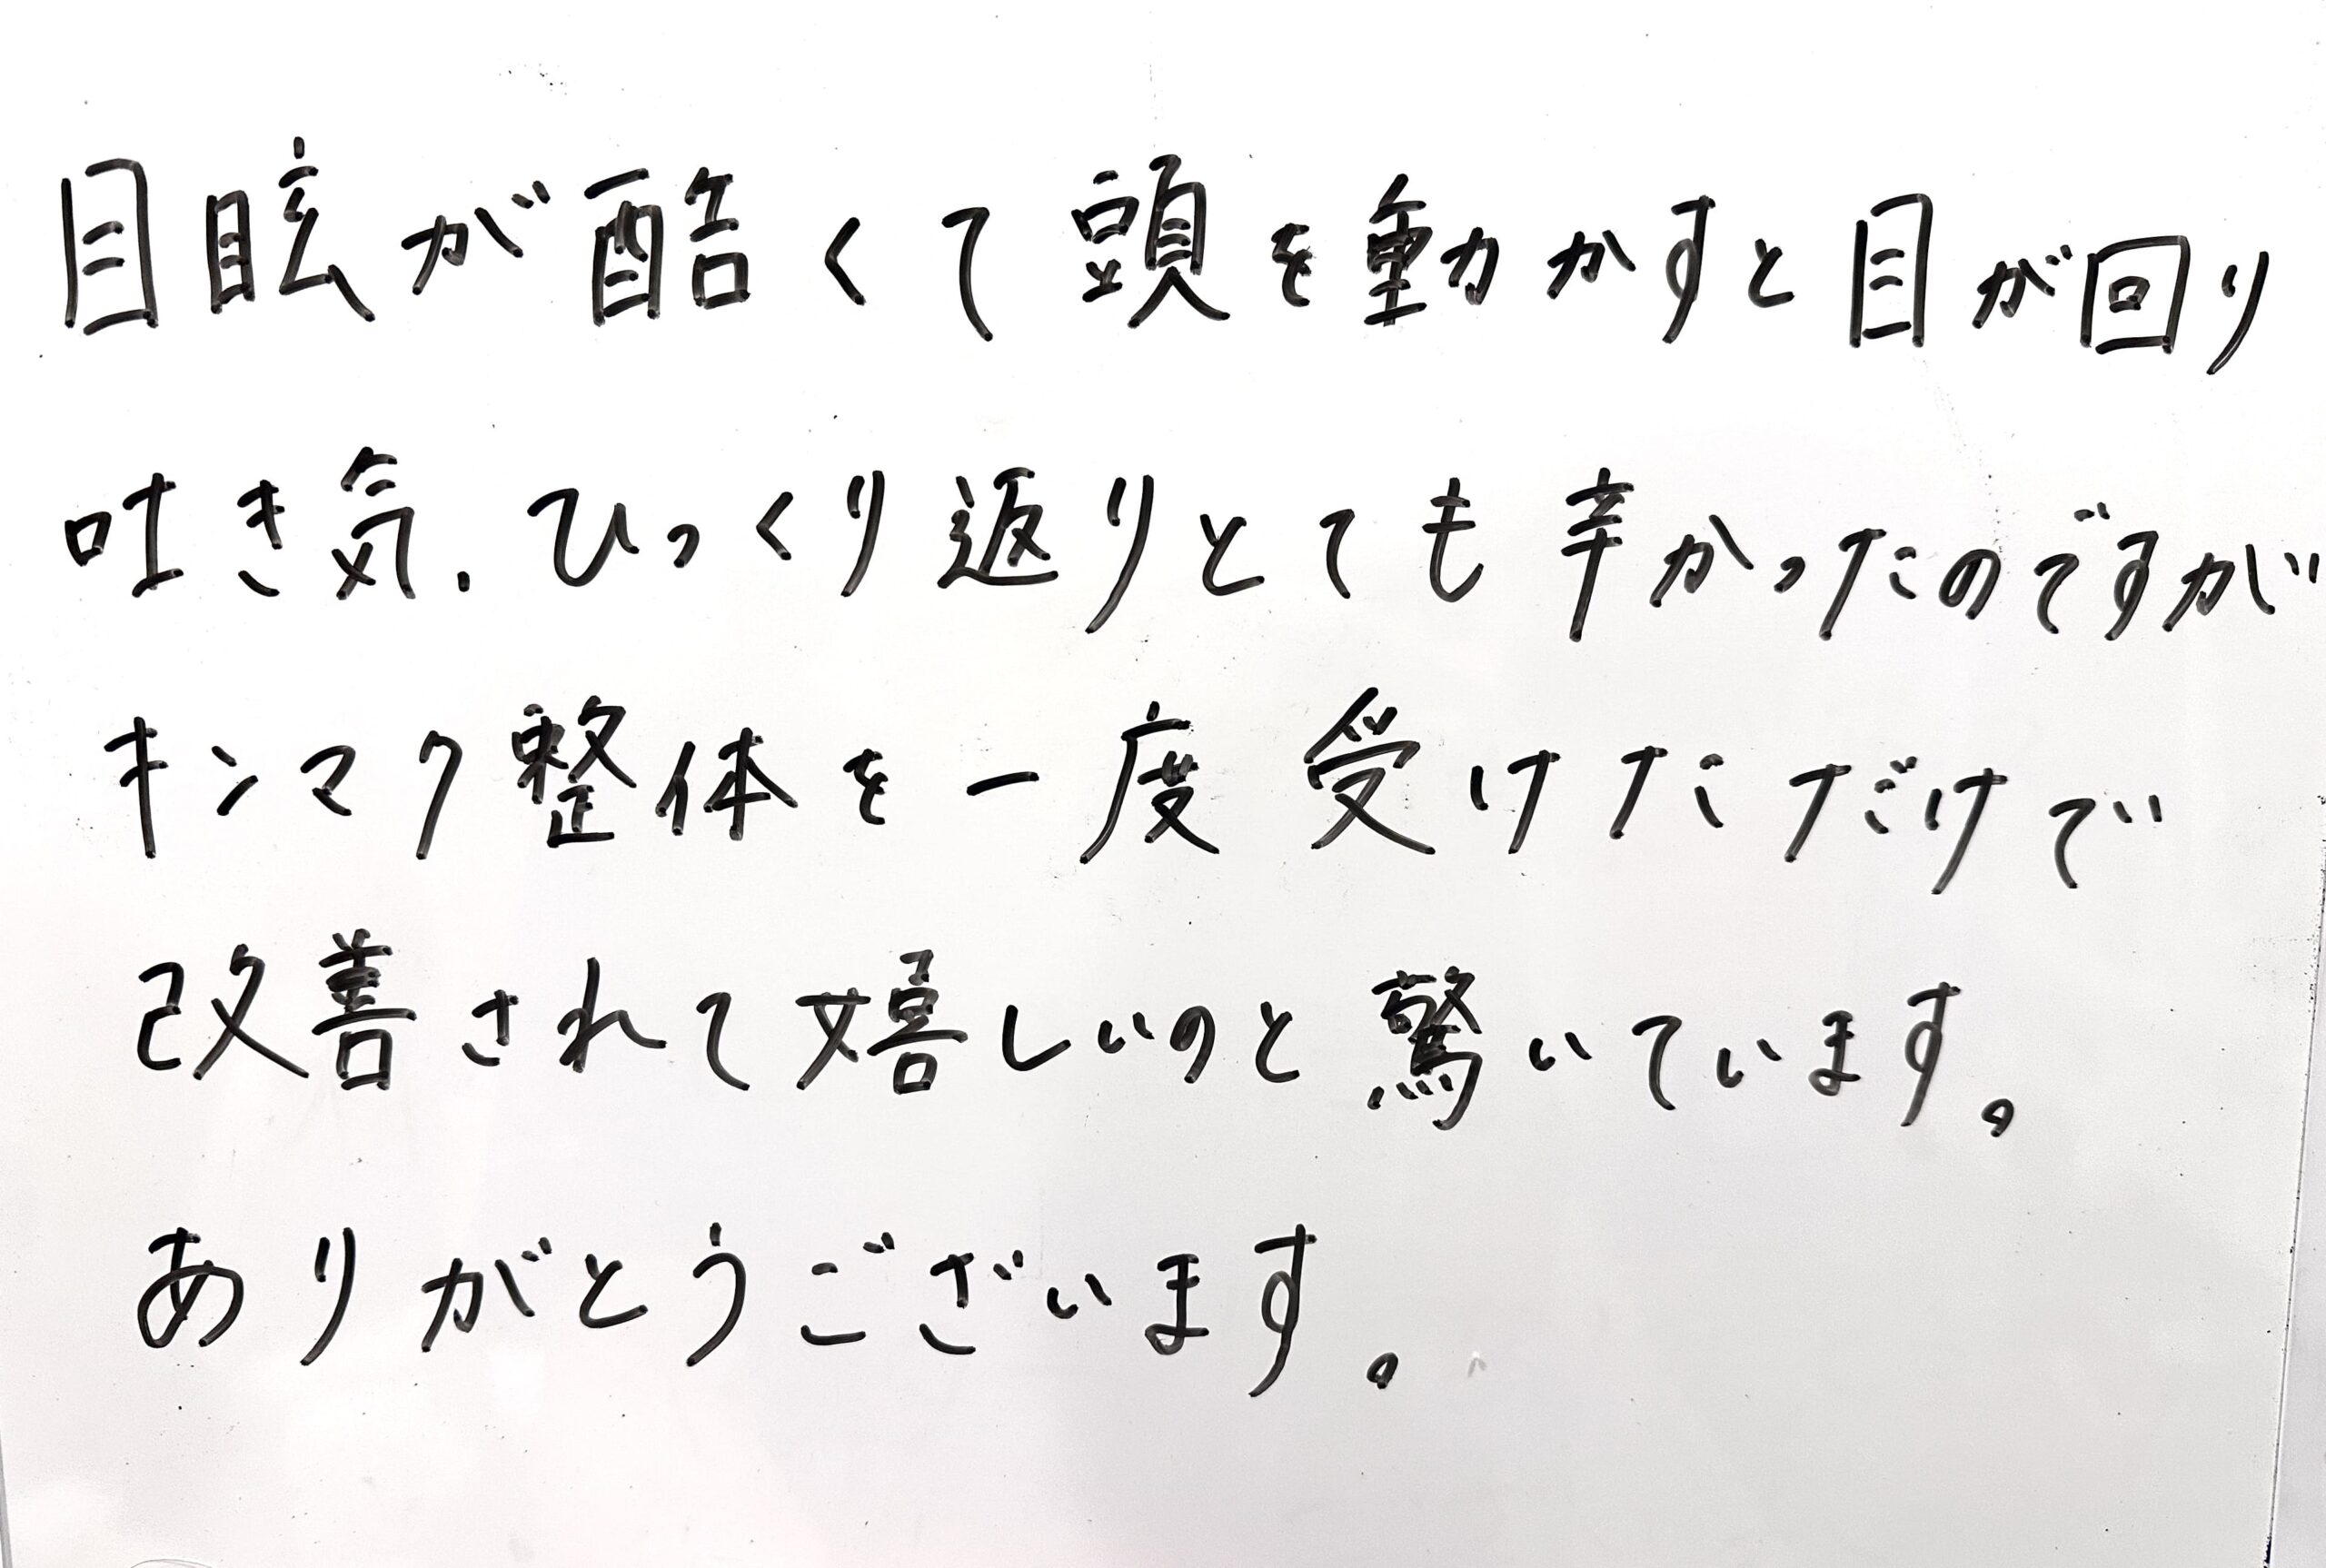 目眩が酷くて頭を動かすと目が回り
吐き気、ひっくり返りとても辛かったのですが
キンマク整体を一度受けただけで
改善されて嬉しいのと驚いています。
ありがとうございます。